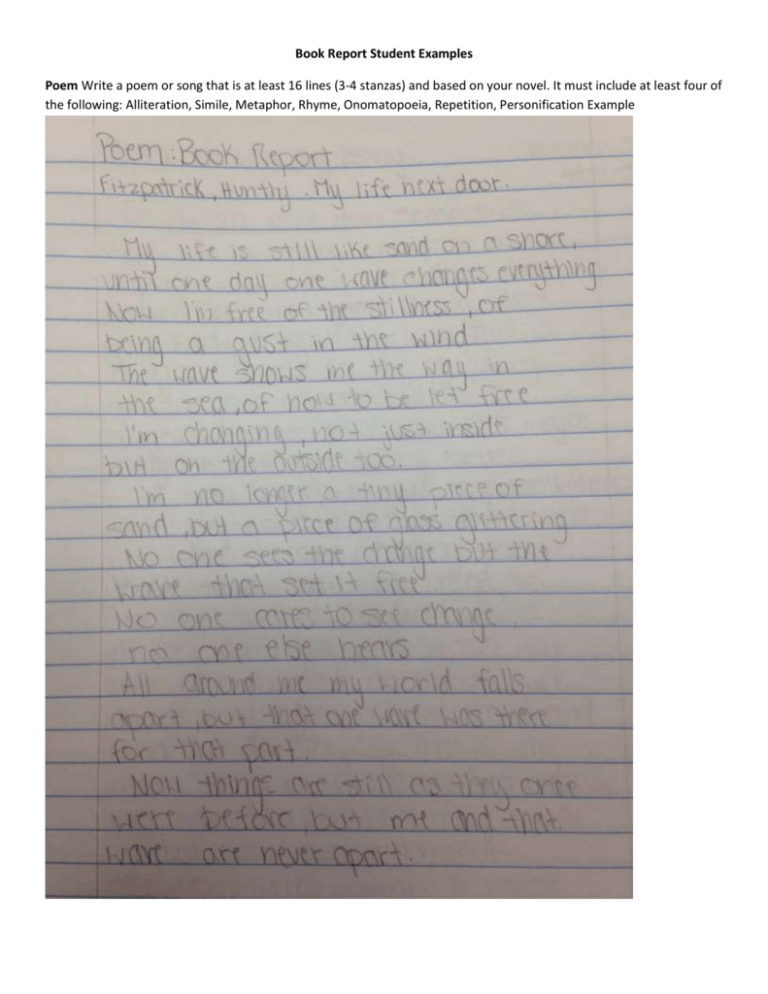 Book Report Student Examples
Poem Write a poem or song that is at least 16 lines (3-4 stanzas) and based on your novel. It must include at least four of
the following: Alliteration, Simile, Metaphor, Rhyme, Onomatopoeia, Repetition, Personification Example
Poem: Book Report
Fitzpatrick, Huntly. My life next door.
My life is still like sand on a shore,
until one day one wave changes everything
Now I'm free of the stillness, of
being a gust in the wind
The wave shows me the way in
the sea, of how to be let free
I'm changing, not just inside
but on the outside too.
I'm no longer a tiny piece of
sand, but a piece of glass glittering
No one sees the change but the
wave that set it free
No one cares to see change
no one else hears
All around me my world falls
apart, but that one wave was there
for that part.
Now things are still as they once
were before, but me and that
wave are never apart.